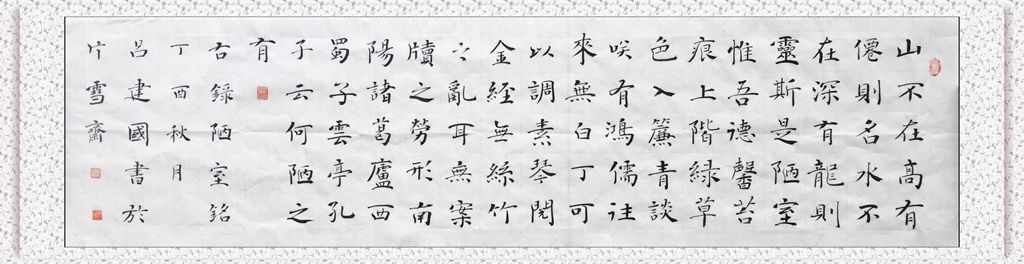 山不在高有
僊則名水不
在深有龍則
靈斯是陋室
惟吾德馨苔
痕上階緑草
色入簾青談
咲有鴻儒往
來無白丁可
以調素琴閱
金經無絲竹
之亂耳無案
牘之勞形南
陽諸葛廬西
蜀子雲亭孔
子云何陋之
有
右錄陋室銘
丁酉秋月
呂建國書於
片雪齋